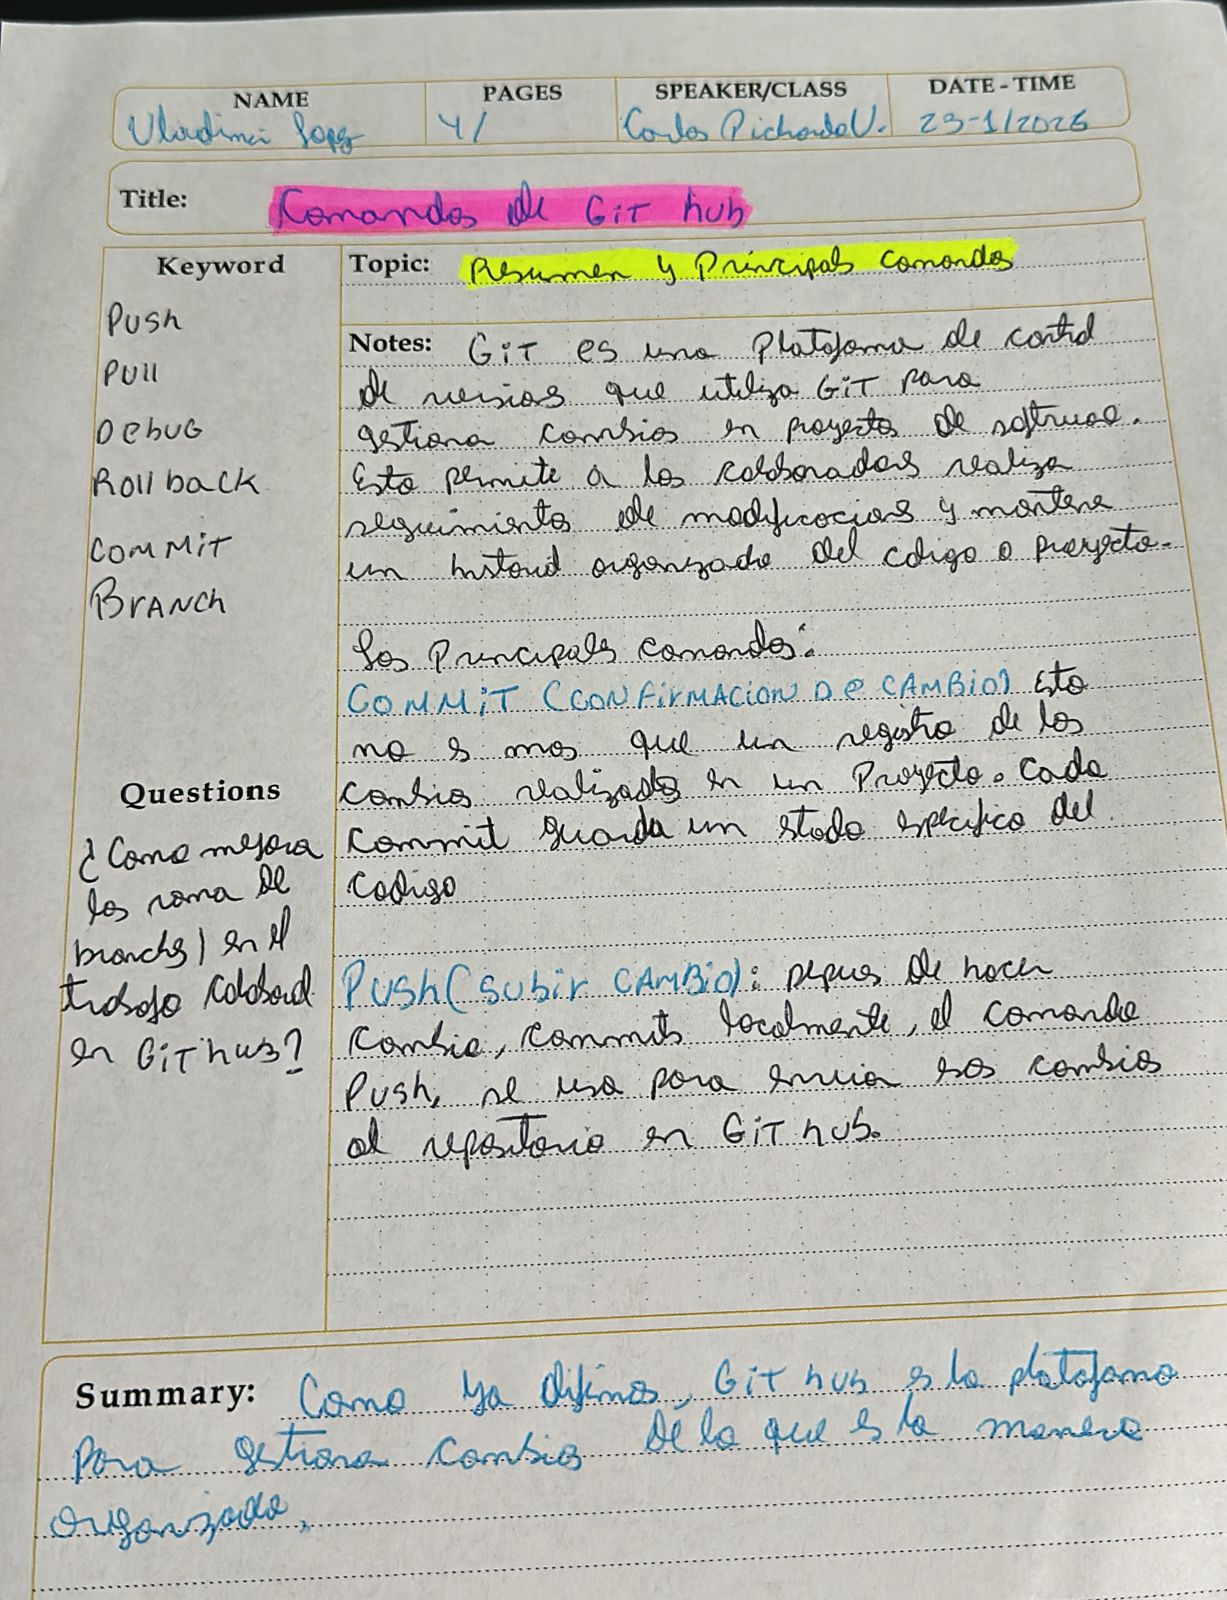 NAME PAGES SPEAKER/CLASS DATE - TIME
Vladimir Lopez 4/ Carlos Pichardo V. 23-1/2026
Title: Comandos de GiT hub
Keyword
Push
Pull
Debug
Rollback
COMMiT
BrANCh
Topic: Resumen y Principales comandos
Notes: GiT es una Plataforma de control
de versiones que utiliza GiT para
gestionar cambios en proyectos de software.
Esto permite a los colaboradores realizar
seguimientos de modificaciones y mantener
un historial organizado del codigo o proyecto.
Los Principales comandos:
COMMiT (CONFirMACION De CAMBiO) Esto
no es mas que un registro de los
cambios realizados en un Proyecto. Cada
Commit guarda un estado especifico del
codigo
Push (subir CAMBiO): despues de hacer
Cambio, commits localmente, el comando
Push, se usa para enviar esos cambios
al repositorio en GiT hub.
Questions
¿Como mejora
las rama de
branches) en el
trabajo colaboral
en GiT hub?
Summary: Como ya dijimos, GiT hub es la plataforma
para gestionar cambios de lo que es la manera
organizada.